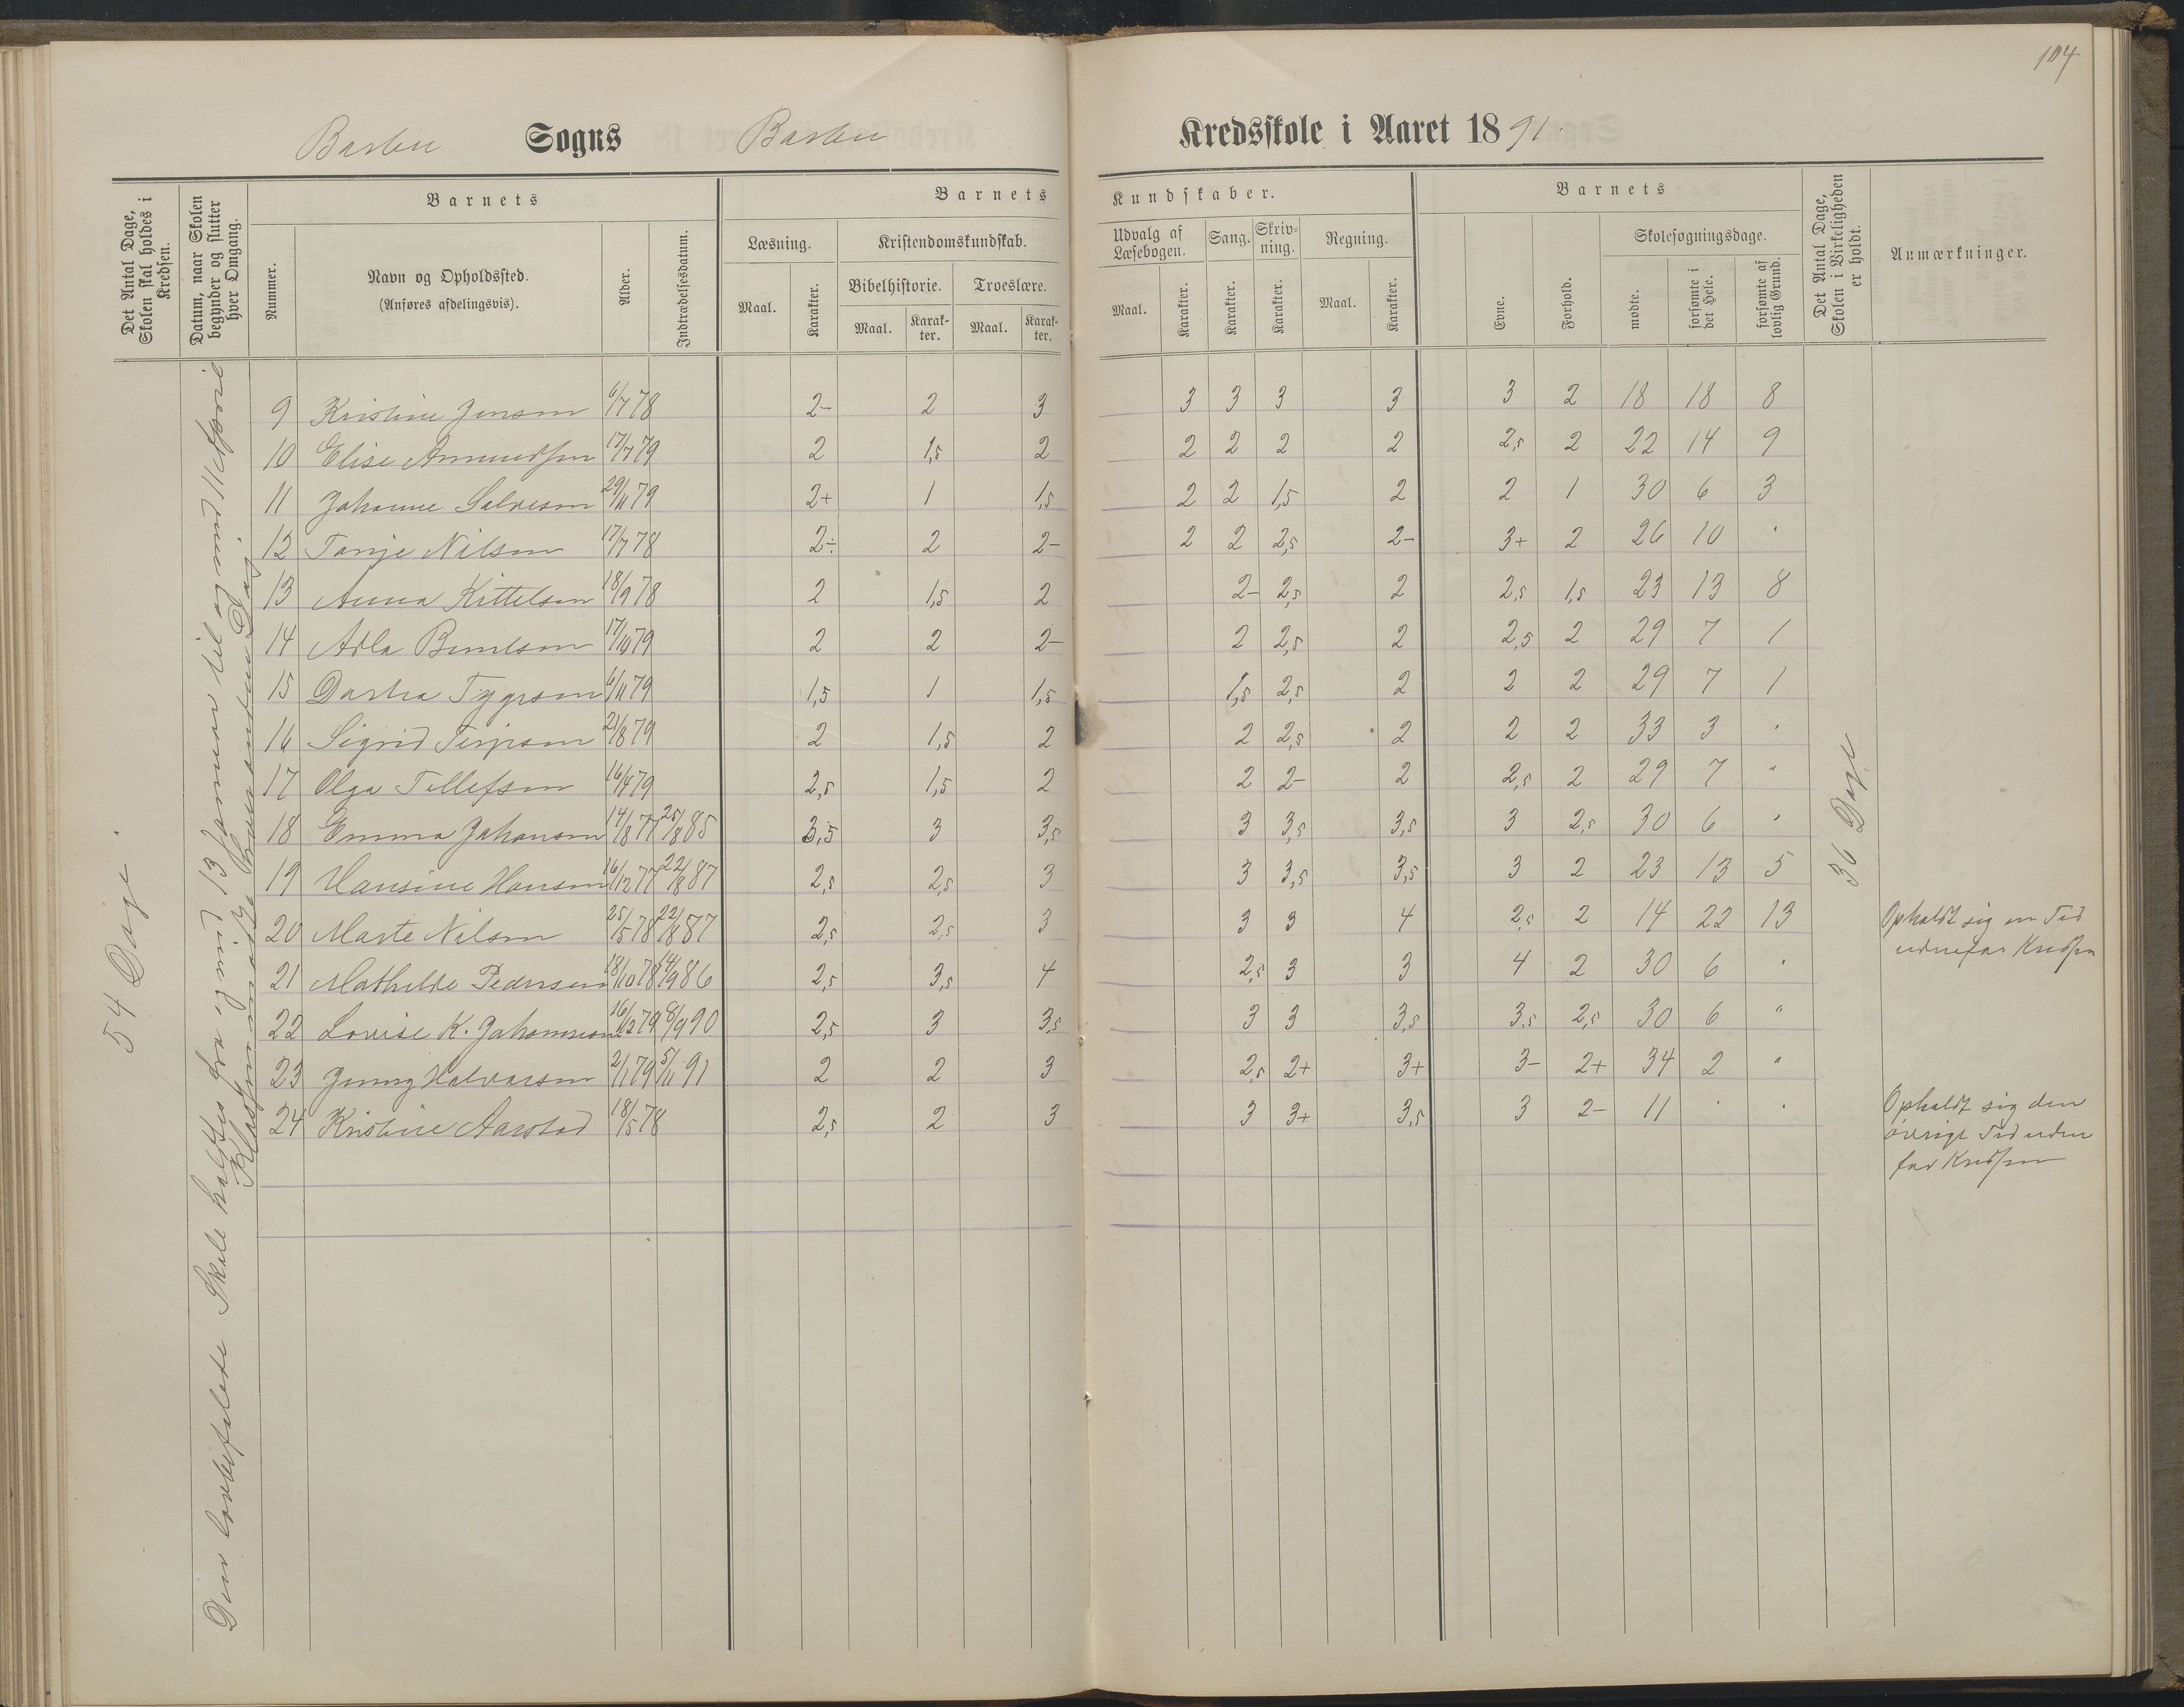 104
Barbu Sogns Barbu Kredsskole i Aaret 1891.
Det Antal Dage, Skolen skal holdes i Kredsen.
Datum, naar Skolen begynder og slutter hver Omgang.
Barnets
Nummer.
Navn og Opholdssted.
(Anføres afdelingsvis).
Alder.
Indtrædelsesdatum.
Barnets Kundskaber.
Læsning.
Maal. Karakter.
Kristendomskundskab.
Bibelhistorie. Troeslære.
Maal. Karakter. Maal. Karakter.
Udvalg af Læsebogen.
Maal. Karakter.
Sang.
Karakter.
Skrivning.
Karakter.
Regning.
Maal. Karakter.
Barnets
Evne. Forhold.
Skolesøgningsdage.
mødte. forsømte i det Hele. forsømte af lovlig Grund.
Det Antal Dage, Skolen i Virkeligheden er holdt.
Anmærkninger.
54 Dage.
Den lovbefalede Skole holdtes fra og med 13 Januar til og med 11te April
Klassen mødte hver anden Dag.
9 Kristine Jensen 6/7 78 2- 2 3 3 3 3 3 3 2 18 18 8
10 Elise Amundsen 17/7 79 2 1,5 2 2 2 2 2 2,5 2 22 14 9
11 Johanne Salvesen 29/11 79 2+ 1 1,5 2 2 1,5 2 2 1 30 6 3
12 Tonje Nilsen 17/7 78 2÷ 2 2- 2 2 2,5 2- 3+ 2 26 10 "
13 Anna Kittelsen 18/9 78 2 1,5 2 2- 2,5 2 2,5 1,5 23 13 8
14 Adla Berntsen 17/10 79 2 2 2- 2 2,5 2 2,5 2 29 7 1
15 Dorthea 6/11 79 1,5 1 1,5 1,5 2,5 2 2 2 29 7 1
16 Sigrid Terjesen 21/8 79 2 1,5 2 2 2,5 2 2 2 33 3 "
17 Olga Tellefsen 16/4 79 2,5 1,5 2 2 2- 2 2,5 2 29 7 "
18 Emma Johansen 14/8 77 25/8 85 3,5 3 3,5 3 3,5 3,5 3 2,5 30 6 "
19 Hansine Hansen 16/12 77 22/8 87 2,5 2,5 3 3 3,5 3,5 3 2 23 13 5
20 Marte Nilsen 25/5 78 22/8 87 2,5 2,5 3 3 3 4 2,5 2 14 22 13 Opholdt sig en Tid
udenfor Kredsen
21 Mathilde Pedersen 18/10 78 14/9 86 2,5 3,5 4 2,5 3 3 4 2 30 6 "
22 Lovise K. Johannesen 16/12 79 8/9 90 2,5 3 3,5 3 3 3,5 3,5 2,5 30 6 "
23 Jenny Halvorsen 2/1 79 5/11 91 2 2 3 2,5 2+ 3+ 3- 2+ 34 2 "
24 Kristine Aarstad 18/5 78 2,5 2 3 3 3+ 3,5 3 2- 11 " " Opholdt sig den
øvrige Tid uden
for Kredsen
36 Dage